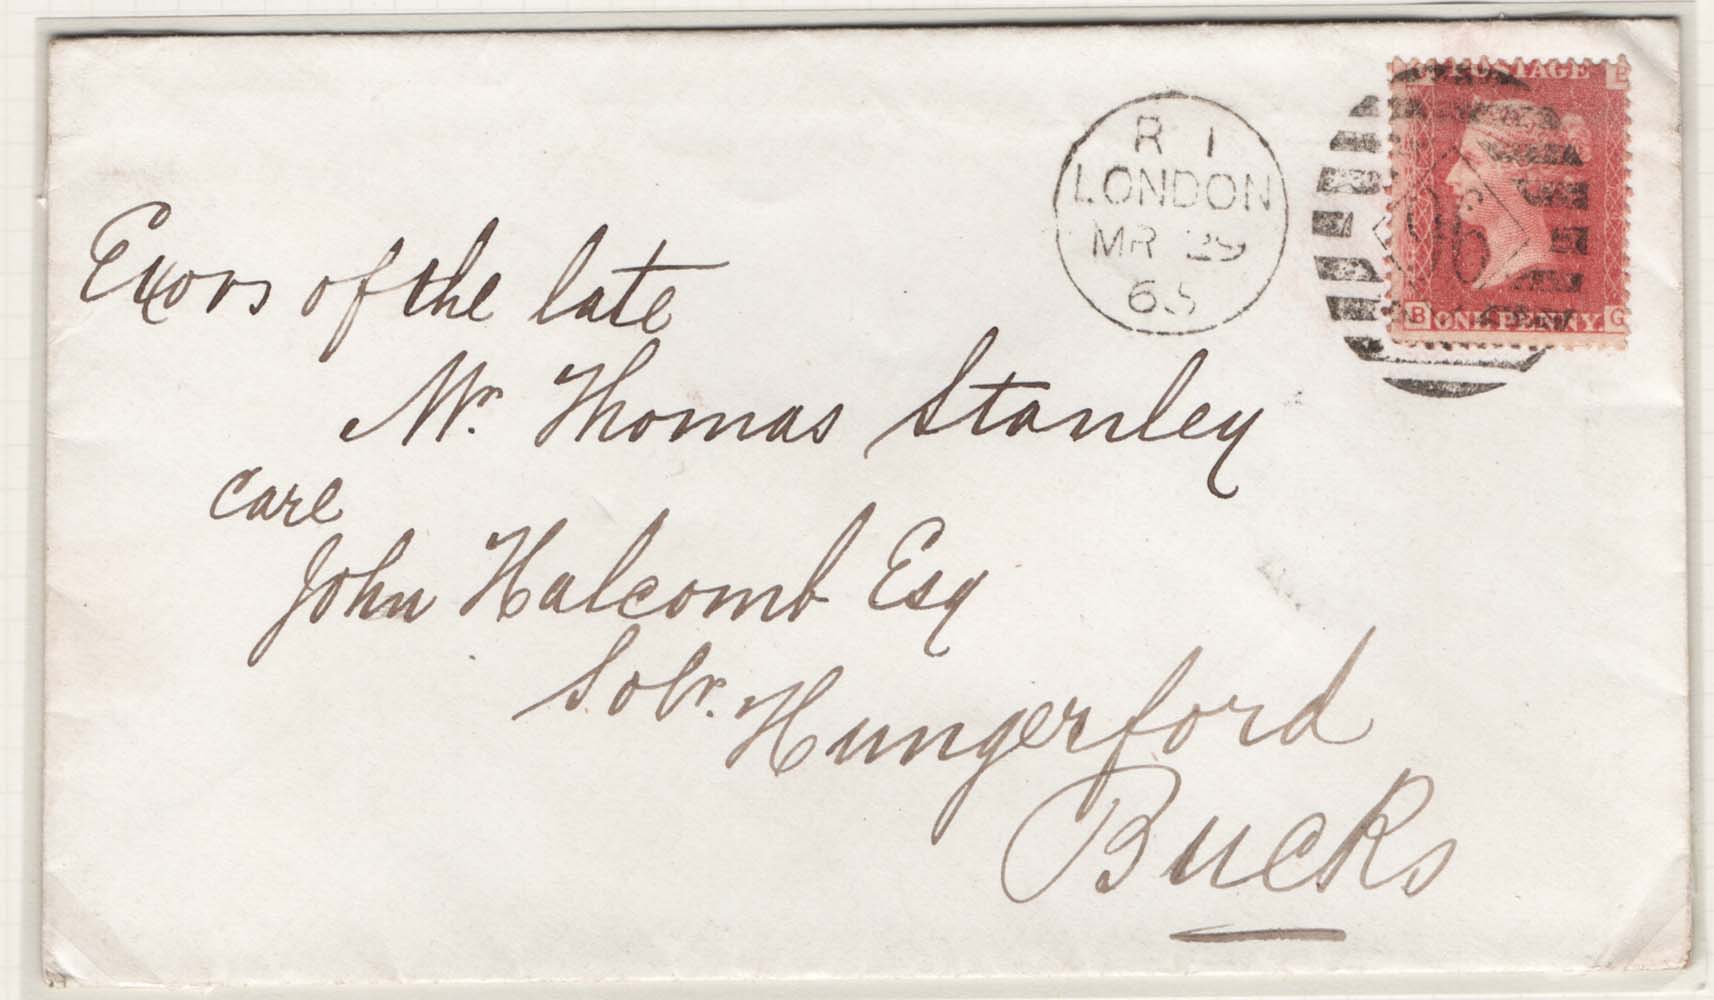 R 1
LONDON
MR 29
65
96
POSTAGE
B ONE PENNY. G
Exors of the late
Mr. Thomas Stanley
care
John Halcomb Esq
Solr. Hungerford
Bucks